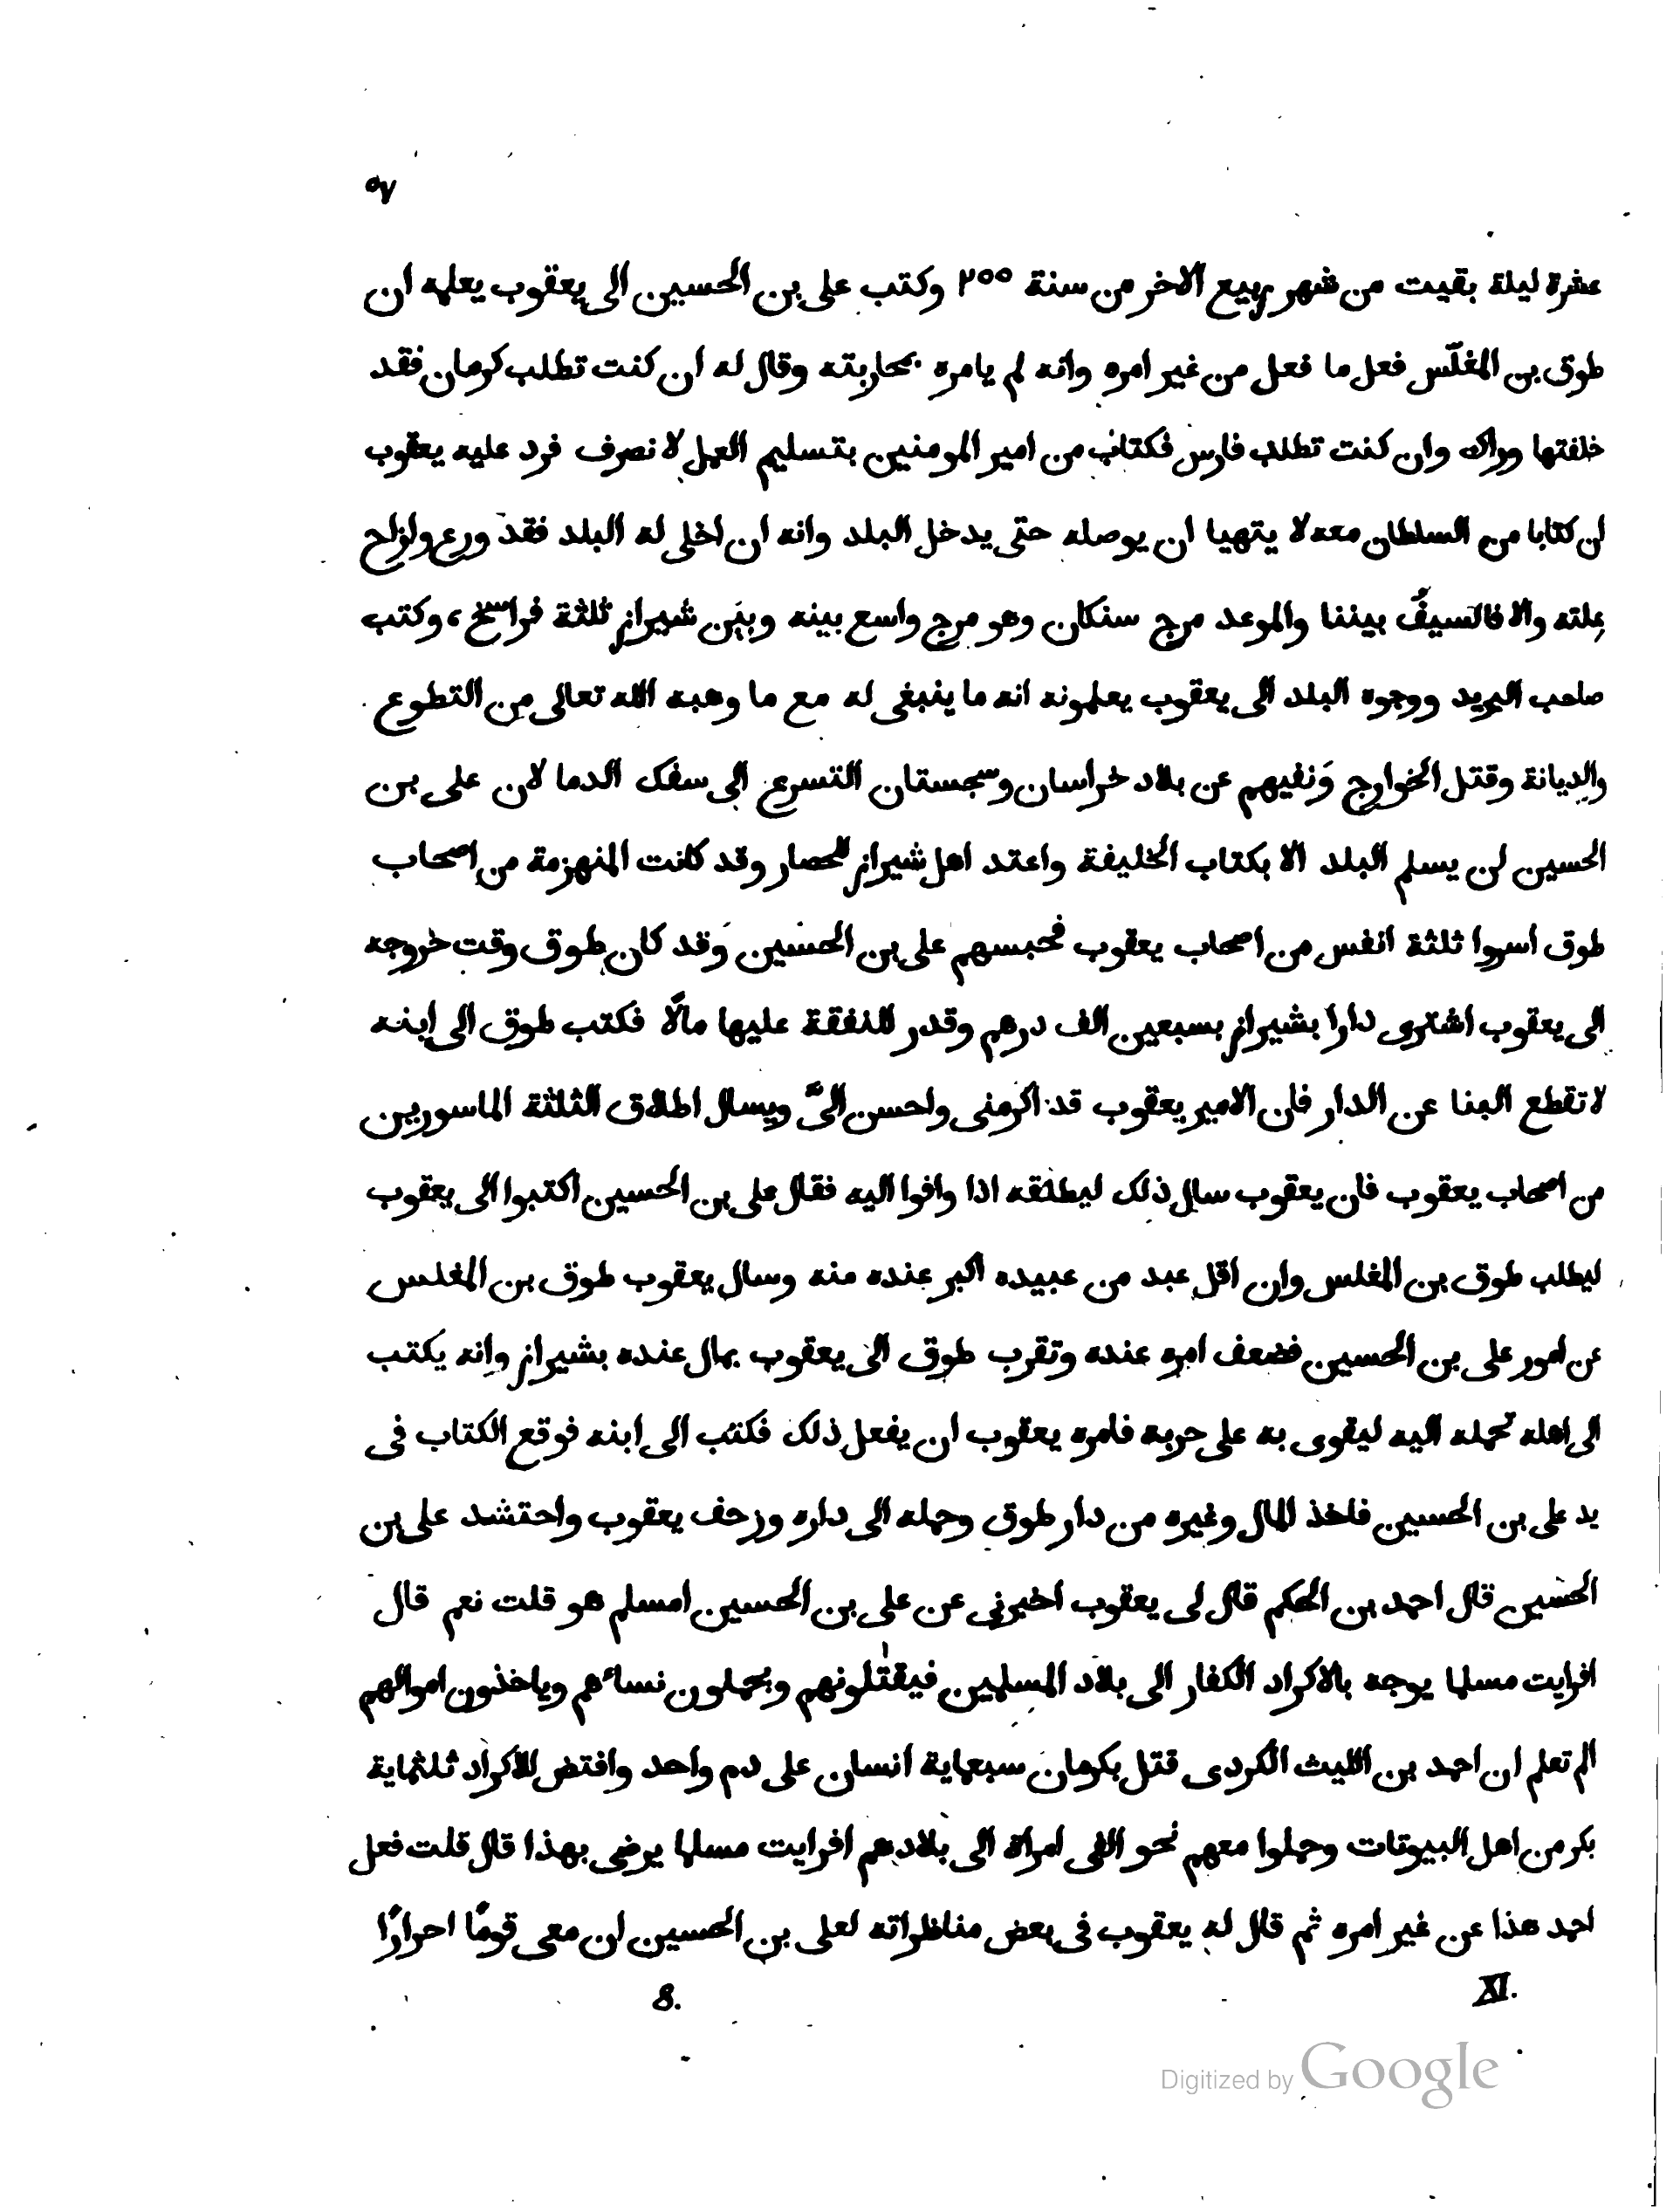 ٥٧
عشرة ليلة بقيت من شهر ربيع الاخر من سنة ٢٥٥ وكتب على بن الحسين الى يعقوب يعلمه ان
طوق بن المغلّس فعل ما فعل من غير امره وانه لم يامره بمحاربته وقال له ان كنت تطلب كرمان فقد
خلفتها وراك وان كنت تطلب فارس فكتاب من امير المومنين بتسليم العمل لانصرف فرد عليه يعقوب
ان كتابا من السلطان معه لا يتهيا ان يوصله حتى يدخل البلد وانه ان اخلى له البلد فقد ورع وازاح
علته والا فالسيف بيننا والموعد مرج سنكان وهو مرج واسع بينه وبين شيراز ثلثة فراسخ، وكتب
صاحب البريد ووجوه البلد الى يعقوب يعلمونه انه ما ينبغى له مع ما وهبه الله تعالى من التطوع
والديانة وقتل الخوارج ونفيهم عن بلاد خراسان وسجستان التسرع الى سفك الدما لان على بن
الحسين لن يسلم البلد الا بكتاب الخليفة واعتد اهل شيراز للحصار وقد كانت المنهزمة من اصحاب
طوق اسروا ثلثة انفس من اصحاب يعقوب فحبسهم على بن الحسين وقد كان طوق وقت خروجه
الى يعقوب اشترى دارا بشيراز بسبعين الف درهم وقدر للنفقة عليها مالًا فكتب طوق الى ابنه
لا تقطع البنا عن الدار فان الامير يعقوب قد اكرمنى واحسن الىّ ويسال اطلاق الثلثة الماسورين
من اصحاب يعقوب فان يعقوب سال ذلك ليطلقه اذا وافوا اليه فقال على بن الحسين اكتبوا الى يعقوب
ليطلب طوق بن المغلس وان اقل عبد من عبيده اكبر عنده منه وسال يعقوب طوق بن المغلس
عن امور على بن الحسين فضعف امره عنده وتقرب طوق الى يعقوب بمال عنده بشيراز وانه يكتب
الى اهله تحمله اليه ليقوى به على حربه فامره يعقوب ان يفعل ذلك فكتب الى ابنه فوقع الكتاب فى
يد على بن الحسين فاخذ المال وغيره من دار طوق وحمله الى داره وزحف يعقوب واحتشد على بن
الحسين قال احمد بن الحكم قال لى يعقوب اخبرنى عن على بن الحسين امسلم هو قلت نعم قال
افرايت مسلما يوجه بالاكراد الكفار الى بلاد المسلمين فيقتلونهم ويحملون نساءهم وياخذون اموالهم
الم تعلم ان احمد بن الليث الكردى قتل بكرمان سبعماية انسان على دم واحد وافتض للاكراد ثلثماية
بكر من اهل البيوتات وحملوا معهم نحو الفى امراة الى بلادهم افرايت مسلما يرضى بهذا قال قلت فعل
احمد هذا عن غير امره ثم قال له يعقوب فى بعض مناظراته لعلى بن الحسين ان معى قومًا احرارًا
XI. 8.
Digitized by Google